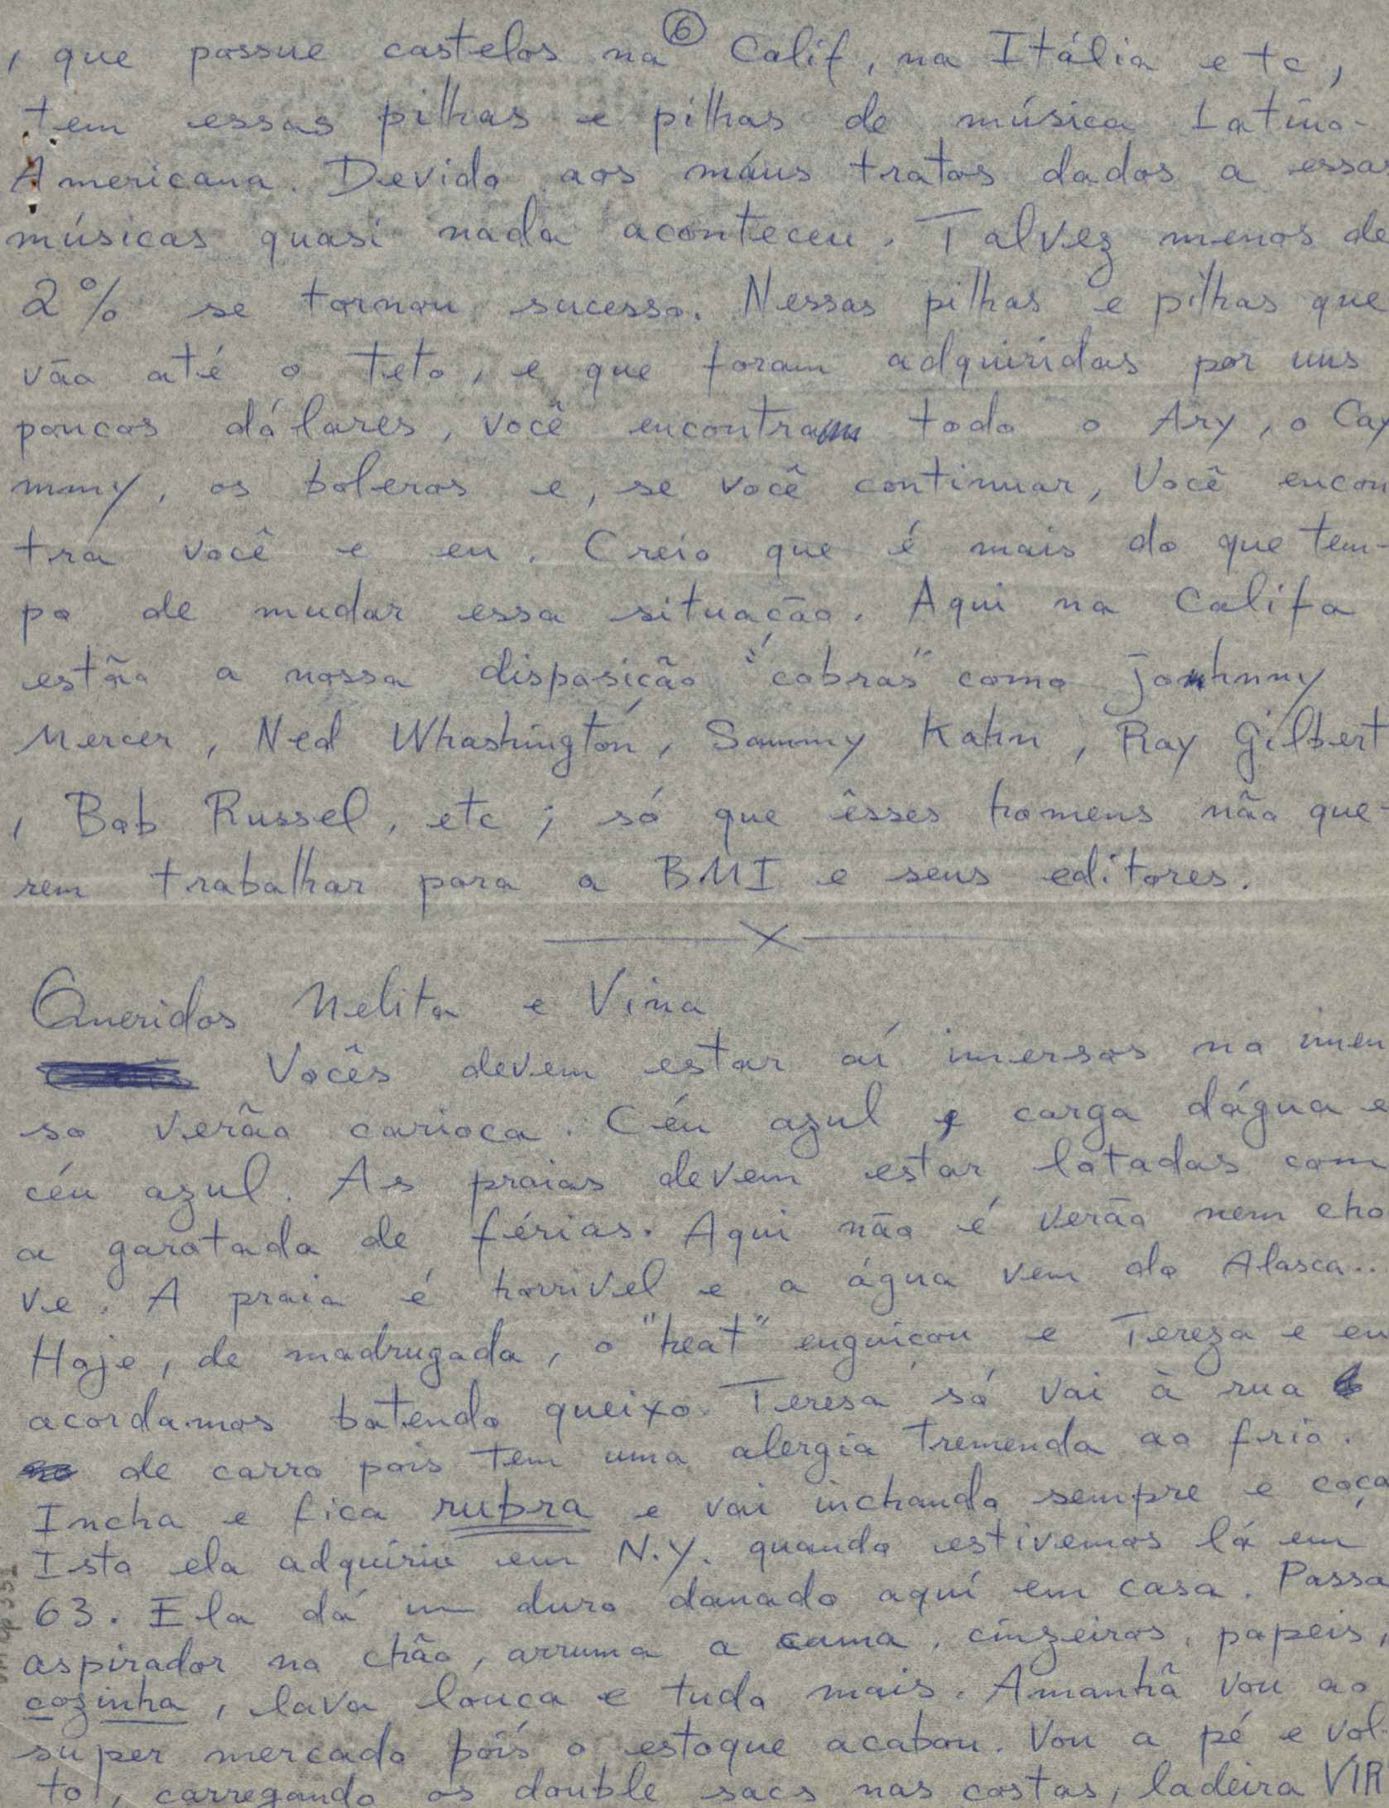 6
, que possue castelos na Calif, na Itália etc,
tem essas pilhas e pilhas de música Latino-
Americana. Devido aos máus tratos dados a essas
músicas quasi nada aconteceu. Talvez menos de
2% se tornou sucesso. Nessas pilhas e pilhas que
vão até o teto, e que foram adquiridas por uns
poucos dólares, você encontra todo o Ary, o Cay
mmy, os boleros e, se você continuar, Você encon
tra você e eu. Creio que é mais do que tem-
po de mudar essa situação. Aqui na Califa
estão a nossa disposição "cobras" como Jonhnny
Mercer, Ned Whashington, Sammy Kahn, Ray Gilbert
, Bob Russel, etc; só que êsses homens não que-
rem trabalhar para a BMI e seus editores.
X
Queridos Nelita e Vina
Vocês devem estar aí imersos no imen
so verão carioca. Céu azul, carga dágua e
céu azul. As praias devem estar lotadas com
a garotada de férias. Aqui não é verão nem cho
ve. A praia é horrivel e a água vem do Alasca..
Hoje, de madrugada, o "heat" enguiçou e Tereza e eu
acordamos batendo queixo. Teresa só vai à rua
de carro pois tem uma alergia tremenda ao frio.
Incha e fica rubra e vai inchando sempre e coça
Isto ela adquiriu em N.Y. quando estivemos lá em
63. Ela dá um duro danado aqui em casa. Passa
aspirador no chão, arruma a cama, cinzeiros, papeis,
cozinha, lava louca e tudo mais. Amanhã vou ao
super mercado pois o estoque acabou. Vou a pé e vol
to, carregando os double sacs nas costas, ladeira VIR